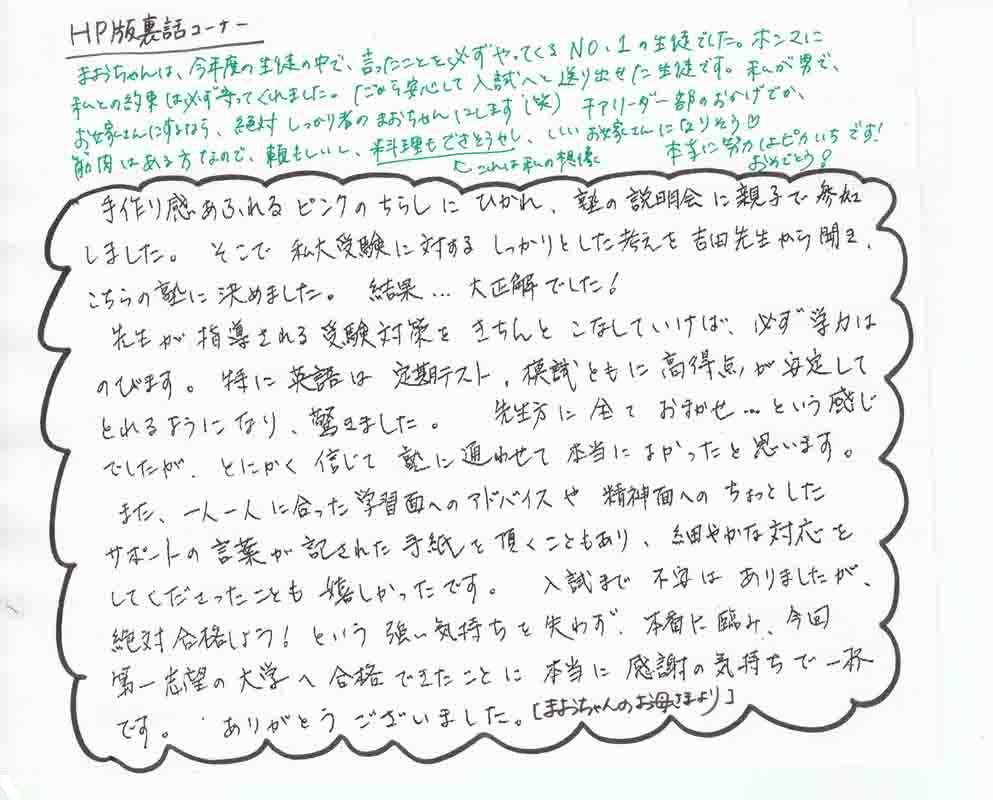 HP版裏話コーナー
まおちゃんは、今年度の生徒の中で、言ったことを必ずやってくるNO.1の生徒でした。ホンマに
私との約束は必ず守ってくれました。だから安心して入試へと送り出せた生徒です。私が男で、
お嫁さんにするなら、絶対しっかり者のまおちゃんにします(笑)チアリーダー部のおかげでか、
筋肉はある方なので、頼もしいし、料理もできそうやし、いいお嫁さんになりそう♡
↑これは私の想像
本当に努力はピカいちです!
おめでとう!
手作り感あふれるピンクのちらしにひかれ、塾の説明会に親子で参加
しました。そこで私大受験に対するしっかりとした考えを吉田先生から聞き、
こちらの塾に決めました。結果…大正解でした!
先生が指導される受験対策をきちんとこなしていけば、必ず学力は
のびます。特に英語は定期テスト、模試ともに高得点が安定して
とれるようになり、驚きました。先生方に全ておまかせ…という感じ
でしたが、とにかく信じて塾に通わせて本当によかったと思います。
また、一人一人に合った学習面へのアドバイスや精神面へのちょっとした
サポートの言葉が記された手紙を頂くこともあり、細やかな対応を
してくださったことも嬉しかったです。入試まで不安はありましたが、
絶対合格しよう!という強い気持ちを失わず、本番に臨み、今回
第一志望の大学へ合格できたことに本当に感謝の気持ちで一杯
です。ありがとうございました。[まおちゃんのお母さまより]